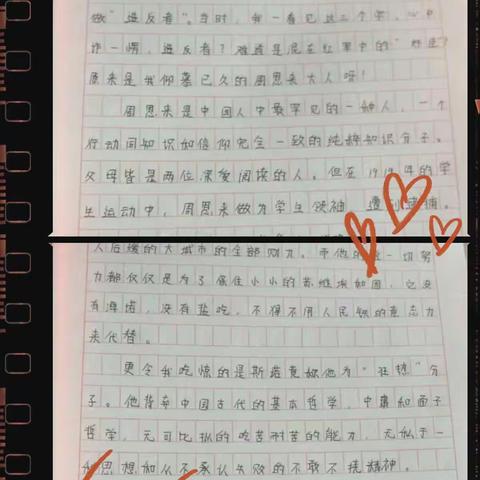 做"造反者"。当时，我一看见这三个字，心中
诈一惊，造反者？难道是混在红军中的"
原来是我仰慕已久的周恩来大人呀！
周恩来是中国人中最罕见的一种人，一个
行动同知识和信仰完全一致的纯粹知识分子。
父母皆是两位深爱阅读的人。但在1919年的学
生运动中，周恩来做为学生领袖 遭到逮捕。
人后援的大城市的全部财力。而他的 一切努
力都仅仅是为了属住小小的苏维埃 国，它没
有海塔，没有盐吃，不得不用人民铁的意志力
来代替。
更令我吃惊的是斯诺竟称他为"狂热"分
子。他背弃中国古代的基本哲学，中庸和面子
哲学，无可比拟的吃苦耐劳的能力，无私于一
种思想和从不承认失败的不敢不挠精神。